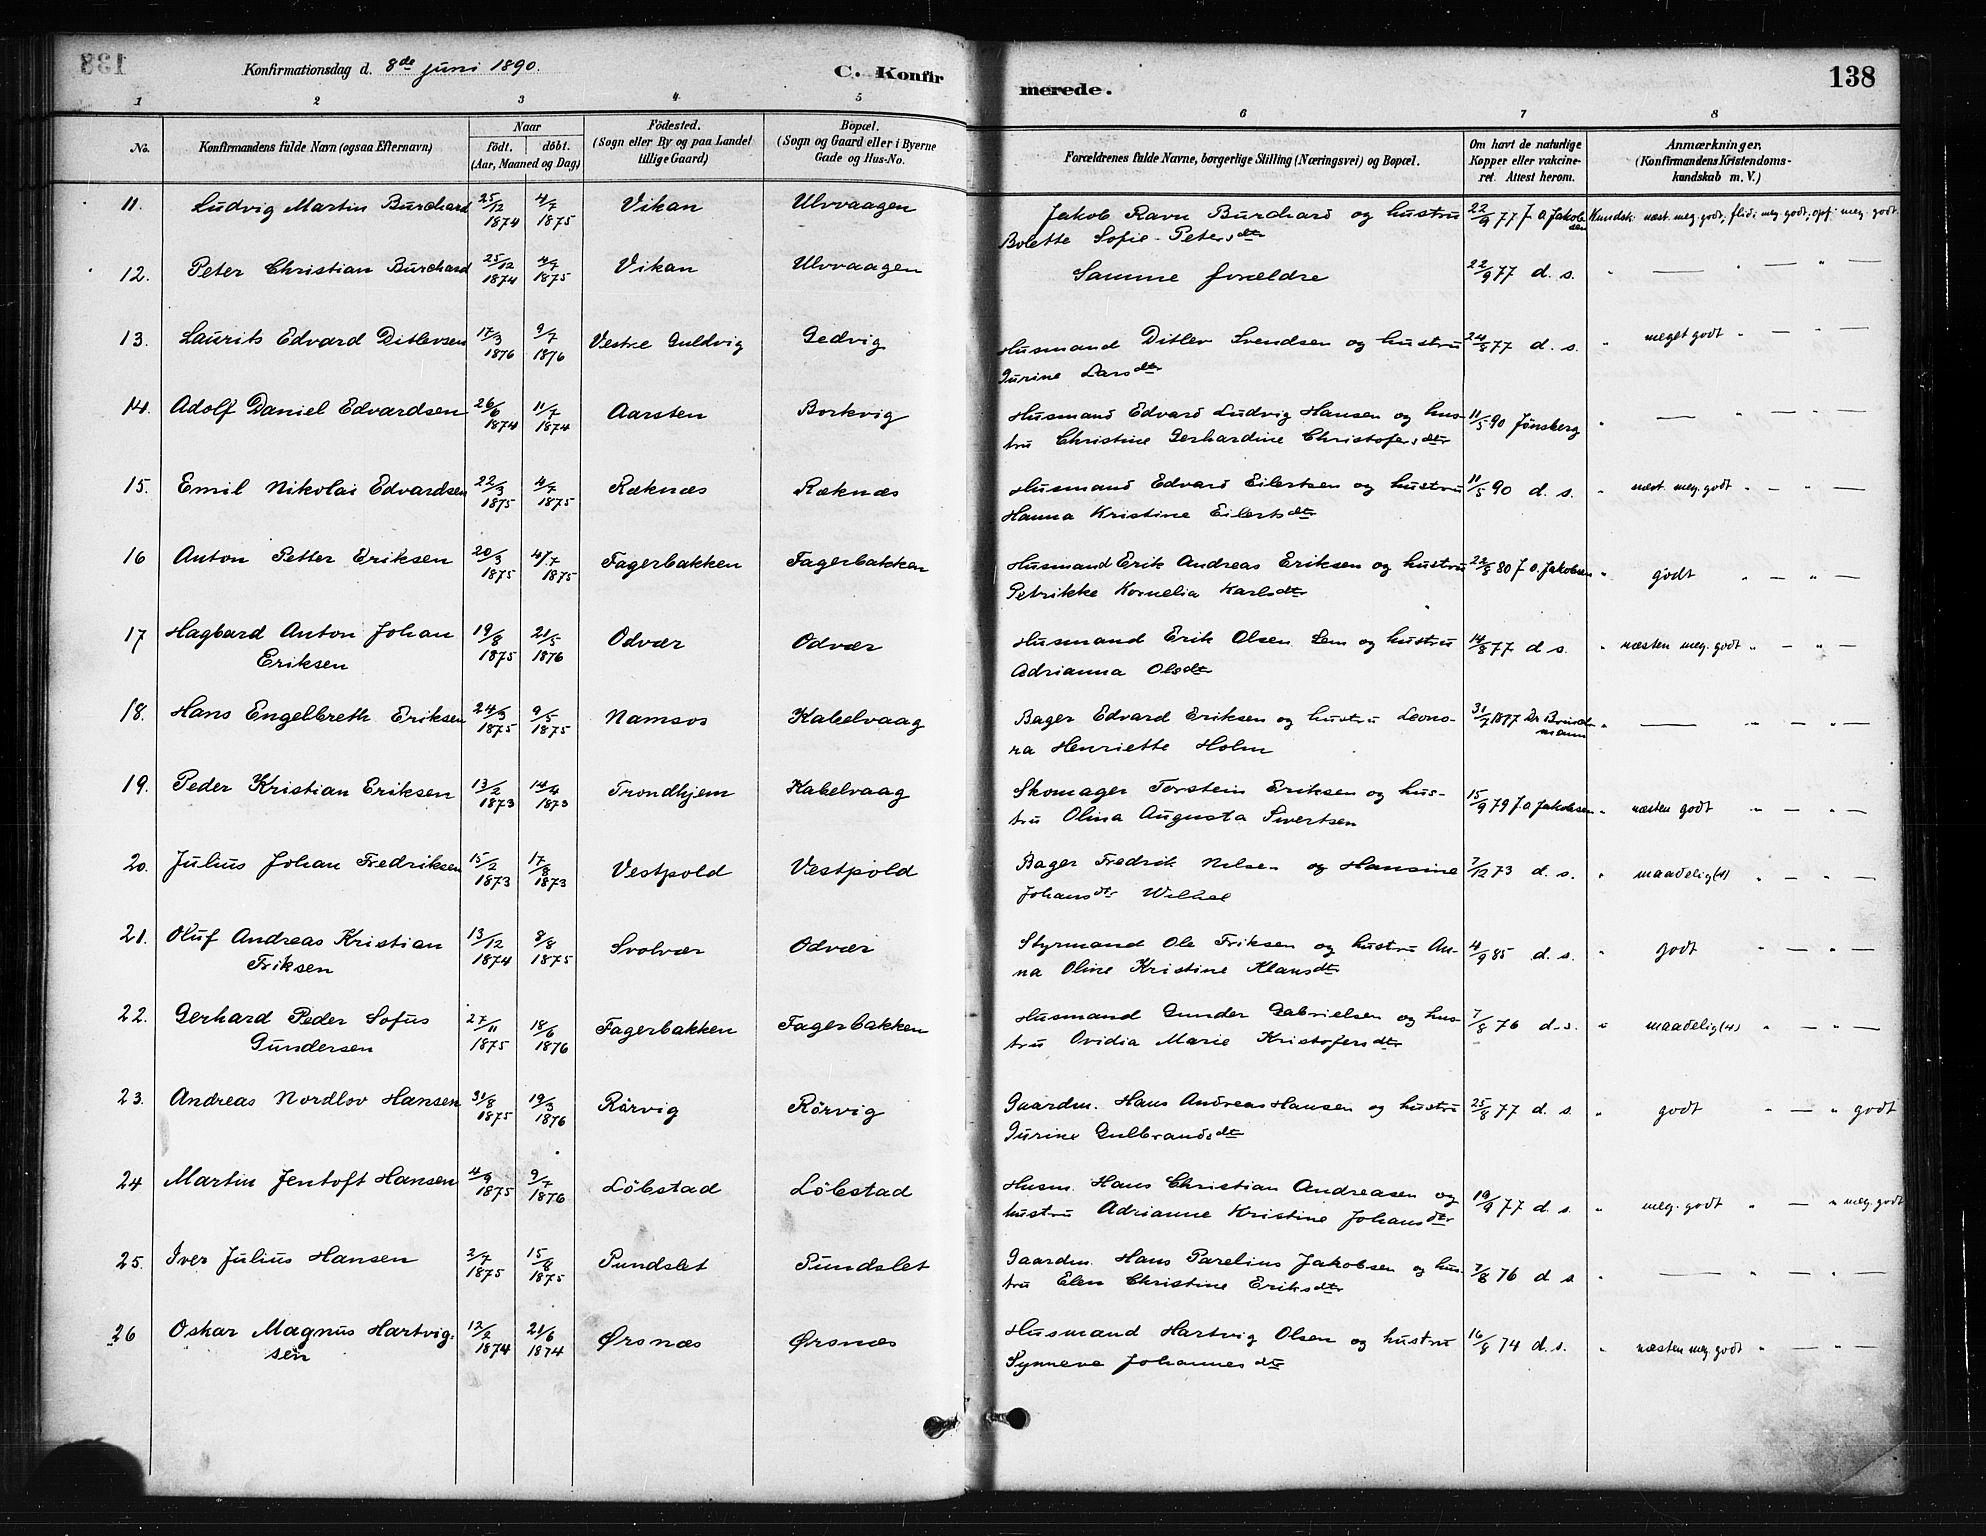 Konfirmationsdag d. 8de juni 1890.
C. Konfirmerede.
138
1 2 3 4 5 6 7 8
No.
Konfirmandens fulde Navn (ogsaa Efternavn)
Naar
födt. döbt.
(Aar, Maaned og Dag)
Födested.
(Sogn eller By og paa Landet
tillige Gaard)
Bopæl.
(Sogn og Gaard eller i Byerne
Gade og Hus-No.
Forældrenes fulde Navne, borgerlige Stilling (Næringsvei) og Bopæl.
Om havt de naturlige
Kopper eller vakcine-
ret. Attest herom.
Anmærkninger.
(Konfirmandens Kristendoms-
kundskab m. V.)
11. Ludvig Martin Burchard 25/12 1874 4/7 1875 Vikan Ulvvaagen Jakob Ravn Burchard og hustru 22/9 77 J. A. Jakobsen Kundsk: næst. meg. godt, flid: meg. godt, opf: meg. godt.
Bolette Sofie Petersdtr
12. Peter Christian Burchard 25/12 1874 4/7 1875 Vikan Ulvvaagen Samme forældre 22/9 77 d. s. " — " — " —
13. Laurits Edvard Ditlevsen 17/3 1876 9/7 1876 Vestre Guldvig Gedvig Husmand Ditlev Svendsen og hustru 24/8 77 d. s. " meget godt " — " —
Gurine Larsdtr
14. Adolf Daniel Edvardsen 26/6 1874 11/7 1874 Aarsten Borkvig Husmand Edvard Ludvig Hansen og hus- 11/5 90 Jönsberg " — " — " —
tru Christine Gerhardine Christofersdtr
15. Emil Nikolai Edvardsen 22/3 1875 4/7 1875 Ræknæs Ræknæs Husmand Edvard Eilertsen og hustru 11/5 90 d. s. " næst. meg. godt " — " —
Hanna Kristine Eilertsdtr
16 Anton Petter Eriksen 20/3 1875 4/7 1875 Fagerbakken Fagerbakken Husmand Erik Andreas Eriksen og hustru 22/8 80 J. A. Jakobsen " godt " — " —
Petrikke Kornelia Karlsdtr
17 Hagbard Anton Johan 19/8 1875 21/5 1876 Odvær Odvær Husmand Erik Olsen Lem og hustru 14/8 77 d s. " næsten meg. godt " — " —
Eriksen Adrianna Olsdtr
18. Hans Engelbreth Eriksen 24/3 1875 9/5 1875 Namsos Kabelvaag Bager Edvard Eriksen og hustru Leono- 31/7 1877 Dr " — " — " —
ra Henriette Holm
19. Peder Kristian Eriksen 13/2 1873 14/4 1873 Trondhjem Kabelvaag Skomager Torstein Eriksen og hus- 15/9 79 J. A Jakobsen " næsten godt " — " —
tru Olina Augusta Sivertsen
20. Julius Johan Fredriksen 15/2 1873 17/8 1873 Vestpold Vestpold Bager Fredrik Nilsen og Hansine 7/12 73 d. s. " maadelig (4) " — " —
Johansdtr
21. Oluf Andreas Kristian 13/12 1874 8/8 1875 Svolvær Odvær Styrmand Ole Friksen og hustru An- 4/9 85 d. s. " godt " — " —
Friksen na Oline Kristine Klausdtr
22. Gerhard Peder Sofus 27/11 1875 18/6 1876 Fagerbakken Fagerbakken Husmand Gunder Gabrielsen og hus- 7/8 76 d. s. " maadelig (4) " — " —
Gundersen tru Ovidia Marie Kristofersdtr
23. Andreas Nordlov Hansen 31/8 1875 19/3 1876 Rörvig Rörvig Gaardm. Hans Andreas Hansen og hustru 25/8 77 d. s. " godt " — " godt
Gurine Gulbrandsdtr
24 Martin Jentoft Hansen 4/9 1875 9/7 1876 Löbstad Löbstad Husm. Hans Christian Andreasen og 19/9 77 d. s. " meg. godt " — " meg. godt
hustru Adrianne Kristine Johansdtr
25. Iver Julius Hansen 2/7 1875 15/8 1875 Pundslet Pundslet Gaardm. Hans Parelius Jakobsen og hus- 7/8 76 d s. " — " — " —
tru Elen Christine Eriksdtr
26 Oskar Magnus Hartvig- 12/2 1874 21/6 1874 Ørsnæs Ørsnæs Husmand Hartvig Olsen og hustru 16/8 74 d. s. " næsten meg. godt " — " —
sen Synneve Johannesdtr